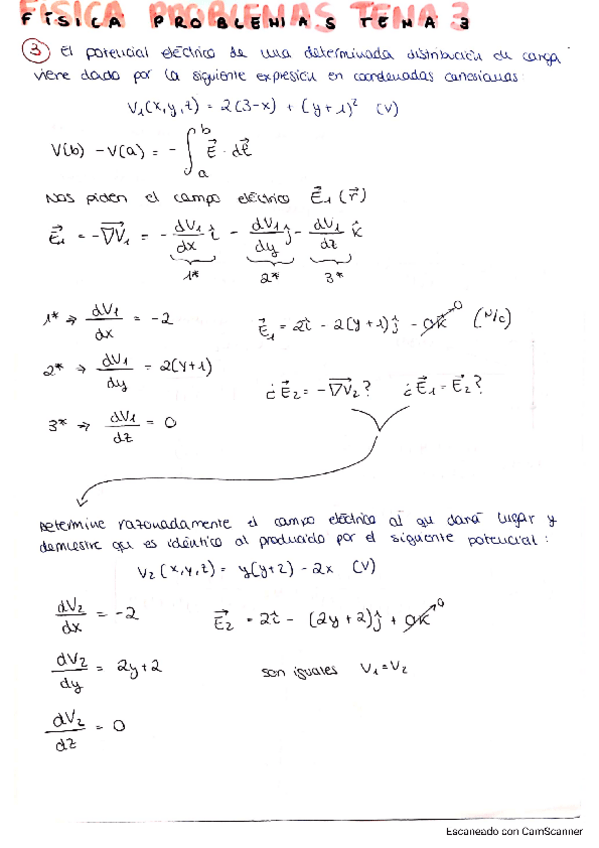 FÍSICA PROBLEMAS TEMA 3
③ El potencial eléctrico de una determinada distribución de carga
viene dado por la siguiente expresión en coordenadas cartesianas:
V₁(x,y,z) = 2(3-x) + (y+1)² (V)
V(b) - V(a) = - ∫ₐᵇ E⃗ · dℓ⃗
Nos piden el campo eléctrico E⃗₁ (r⃗)
E⃗₁ = -∇⃗V₁ = - dV₁/dx î - dV₁/dy ĵ - dV₁/dz k̂
1* 2* 3*
1* → dV₁/dx = -2
E⃗₁ = 2î - 2(y+1)ĵ - 0k̂ 0 (N/C)
2* → dV₁/dy = 2(y+1)
¿E⃗₂ = -∇⃗V₂? ¿E⃗₁ = E⃗₂?
3* → dV₁/dz = 0
Determine razonadamente el campo eléctrico al que dará lugar y
demuestre que es idéntico al producido por el siguiente potencial:
V₂ (x,y,z) = y(y+2) - 2x (V)
dV₂/dx = -2
E⃗₂ = 2î - (2y+2)ĵ + 0k̂ 0
dV₂/dy = 2y+2
son iguales V₁=V₂
dV₂/dz = 0
Escaneado con CamScanner